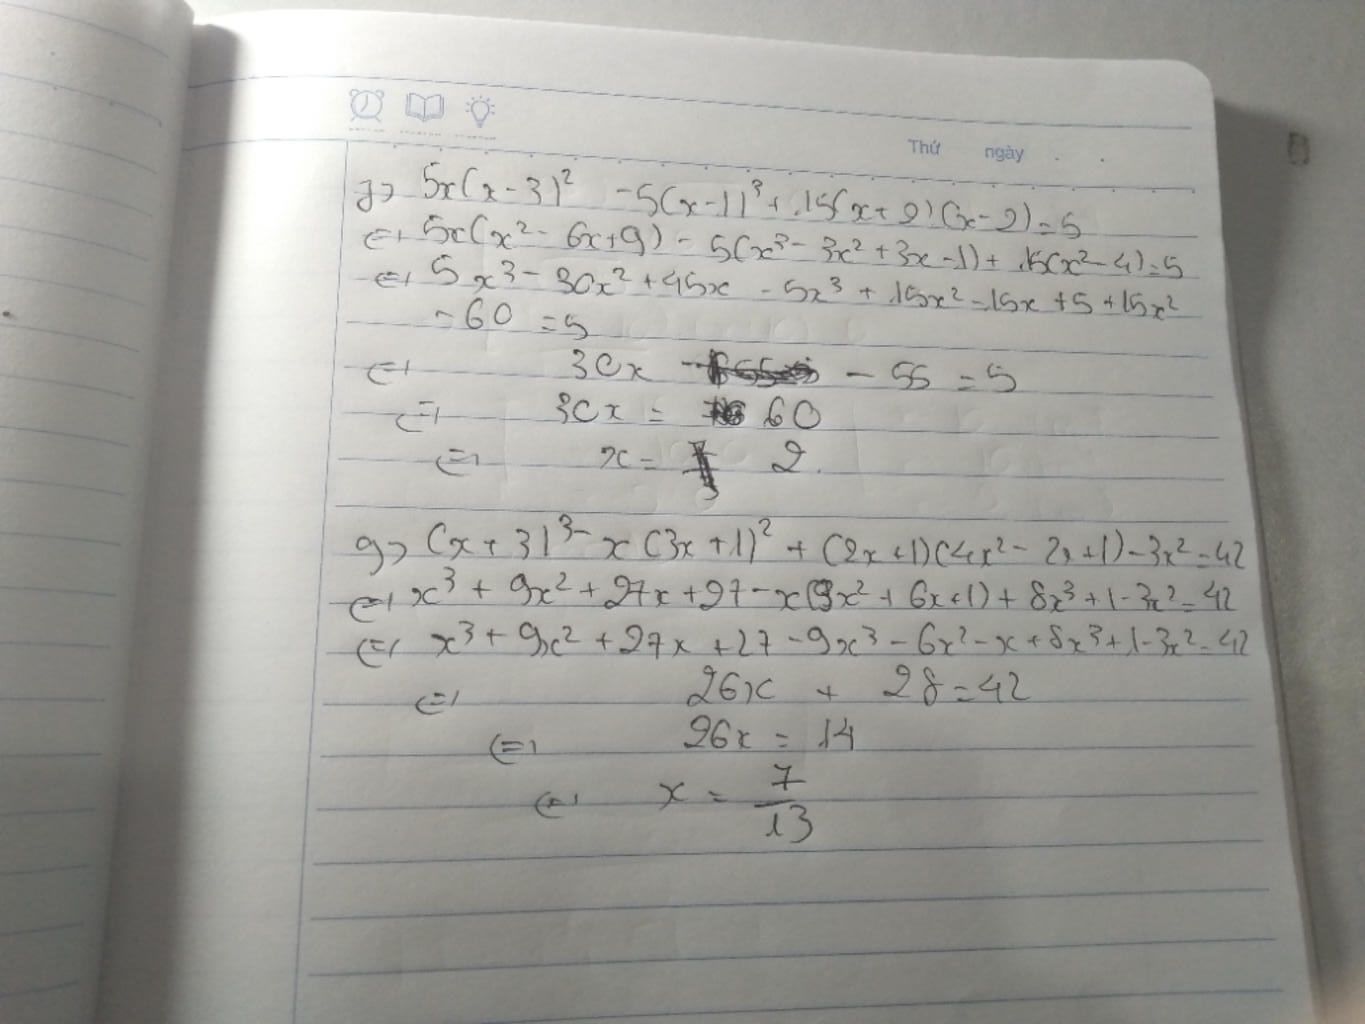 Thứ ngày
g) 5x(x-3)² -5(x-1)³ + 15(x+2)(x-2)=5
⇔ 5x(x² - 6x+9) - 5(x³ - 3x² + 3x - 1) + 15(x² - 4)=5
⇔ 5x³ - 30x² + 45x - 5x³ + 15x² - 15x + 5 + 15x²
- 60 = 5
⇔ 30x - 55 = 5
⇔ 30x = 60
⇔ x = 2.
g) (x + 3)³ - x(3x + 1)² + (2x+1)(4x² - 2x+1) - 3x² = 42
⇔ x³ + 9x² + 27x + 27 - x(9x² + 6x+1) + 8x³ + 1 - 3x² = 42
⇔ x³ + 9x² + 27x + 27 - 9x³ - 6x² - x + 8x³ + 1 - 3x² = 42
⇔ 26x + 28 = 42
⇔ 26x = 14
⇔ x = 7/13